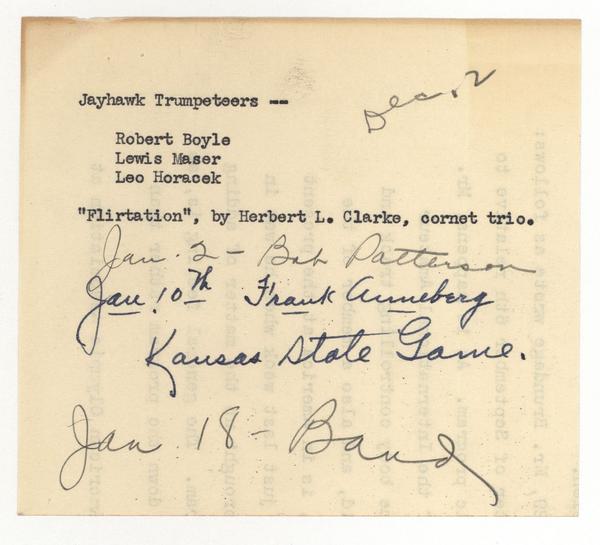 Jayhawk Trumpeteers --
Dec. 2
Robert Boyle
Lewis Maser
Leo Horacek
"Flirtation", by Herbert L. Clarke, cornet trio.
Jan. 2 - Bob Patterson
Jan. 10th Frank Anneberg
Kansas State Game.
Jan 18 - Band